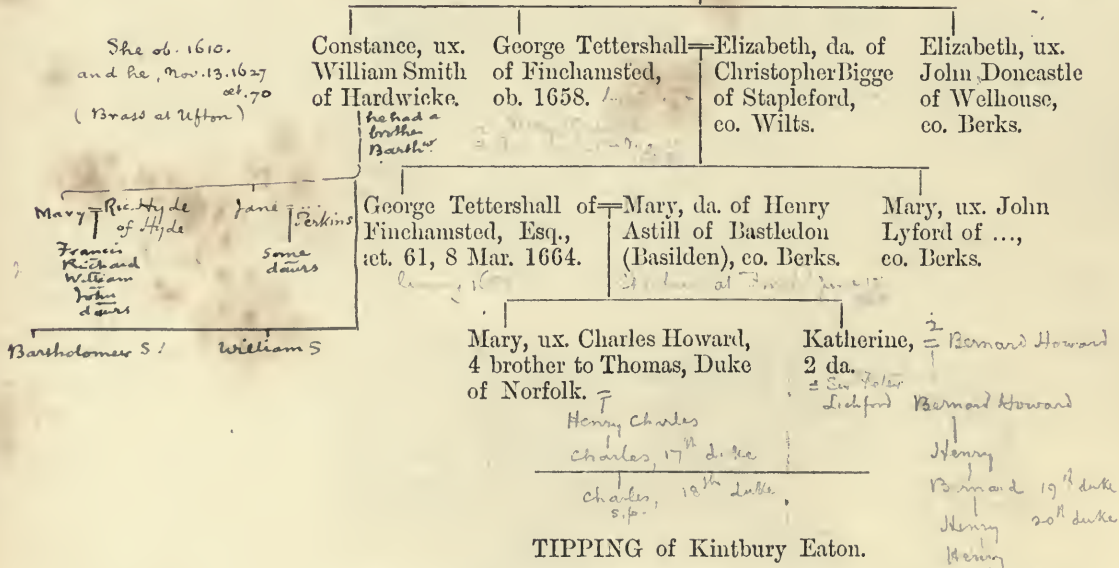 She ob. 1610.
and he, Nov. 13. 1627
æt. 70
(Brass at Ufton)
Constance, ux.
William Smith
of Hardwicke.
he had a
brother
Barthw.
George Tettershall=Elizabeth, da. of
of Finchamsted,
ob. 1658.
Christopher Bigge
of Stapleford,
co. Wilts.
Elizabeth, ux.
John Doncastle
of Welhouse,
co. Berks.
Mary = Ric. Hyde
of Hyde
Francis
Richard
William
John
daurs
Jane = ... Perkins
some
daurs
George Tettershall of=Mary, da. of Henry
Finchamsted, Esq.,
æt. 61, 8 Mar. 1664.
Astill of Bastledon
(Basilden), co. Berks.
Mary, ux. John
Lyford of ...,
co. Berks.
Bartholomew S!
William S
Mary, ux. Charles Howard,
4 brother to Thomas, Duke
of Norfolk. =
Henry Charles
Charles, 17th duke
Charles, 18th duke
s.p.
Katherine, = 2 Bernard Howard
2 da.
1
= Sir
Lichford
Bernard Howard
Henry
Bernard 19th duke
Henry 20th duke
Henry
TIPPING of Kintbury Eaton.